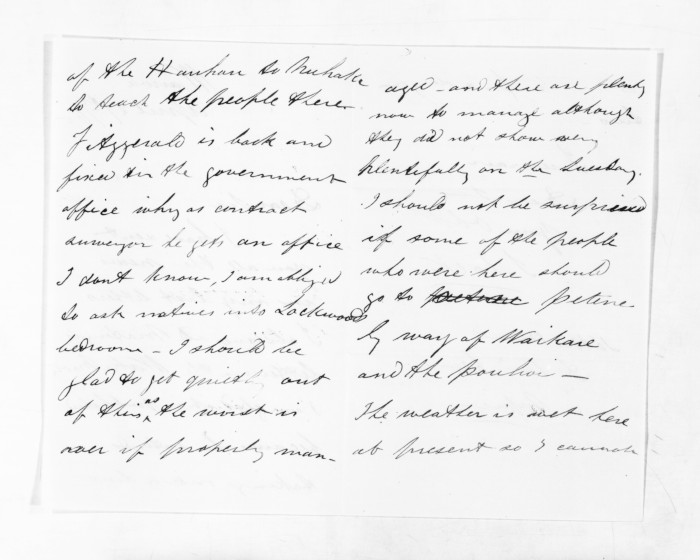 of the Hauhau to Nuhaka
to teach the people there.
Fitzgerald is back and
fixed in the government
office why as contract
surveyor he gets an office
I dont know, I am obliged
to ask natives into Lockwoods
bedroom - I should be
glad to get quietly out
of this as the worst is
over if properly man-
aged - and there are plenty
now to manage although
they did not show very
plentifully on the Tuesday.
I should not be surprised
if some of the people
who were here should
go to Petane
by way of Waikare
and the
The weather is wet here
at present so I cannot